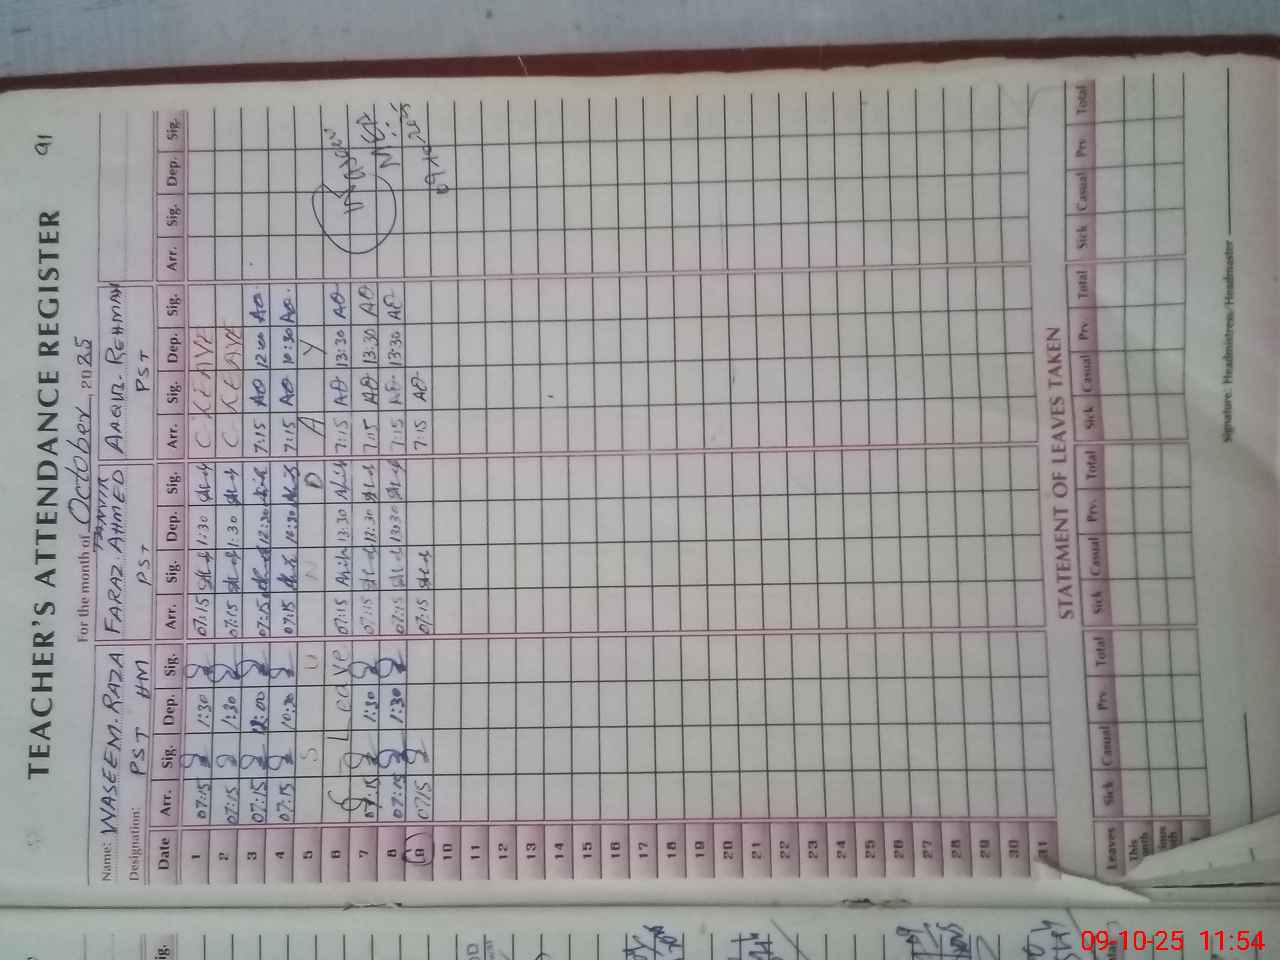 TEACHER'S ATTENDANCE REGISTER 91
For the month of October, 2025
Name: WASEEM. RAZA FARAZ. AHMED TANVIR AAQUL. REHMAN
Designation: PST HM PST PST
Date Arr. Sig. Dep. Sig. Arr. Sig. Dep. Sig. Arr. Sig. Dep. Sig. Arr. Sig. Dep. Sig.
1 07:15 1:30 07:15 1:30 C. LEAVE
2 07:15 1:30 07:15 1:30 C. LEAVE
3 07:15 12:00 07:15 12:30 7:15 AQ 12:00 AQ.
4 07:15 10:30 07:15 10:30 7:15 AQ 10:30 AQ.
5 S U N D A Y
6 C. Leave 07:15 13:30 7:15 AQ 13:30 AQ
7 07:15 1:30 07:15 13:30 7:15 AQ 13.30 AQ
8 07:15 1:30 07:15 13:30 7:15 AQ 13:30 AQ
9 07:15 07:15 7:15 AQ
09.10.2025
10
11
12
13
14
15
16
17
18
19
20
21
22
23
24
25
26
27
28
29
30
31
STATEMENT OF LEAVES TAKEN
Leaves Sick Casual Prv. Total Sick Casual Prv. Total Sick Casual Prv. Total Sick Casual Prv. Total
This
Signature: Headmistress/Headmaster
Sig.
09-10-25 11:54